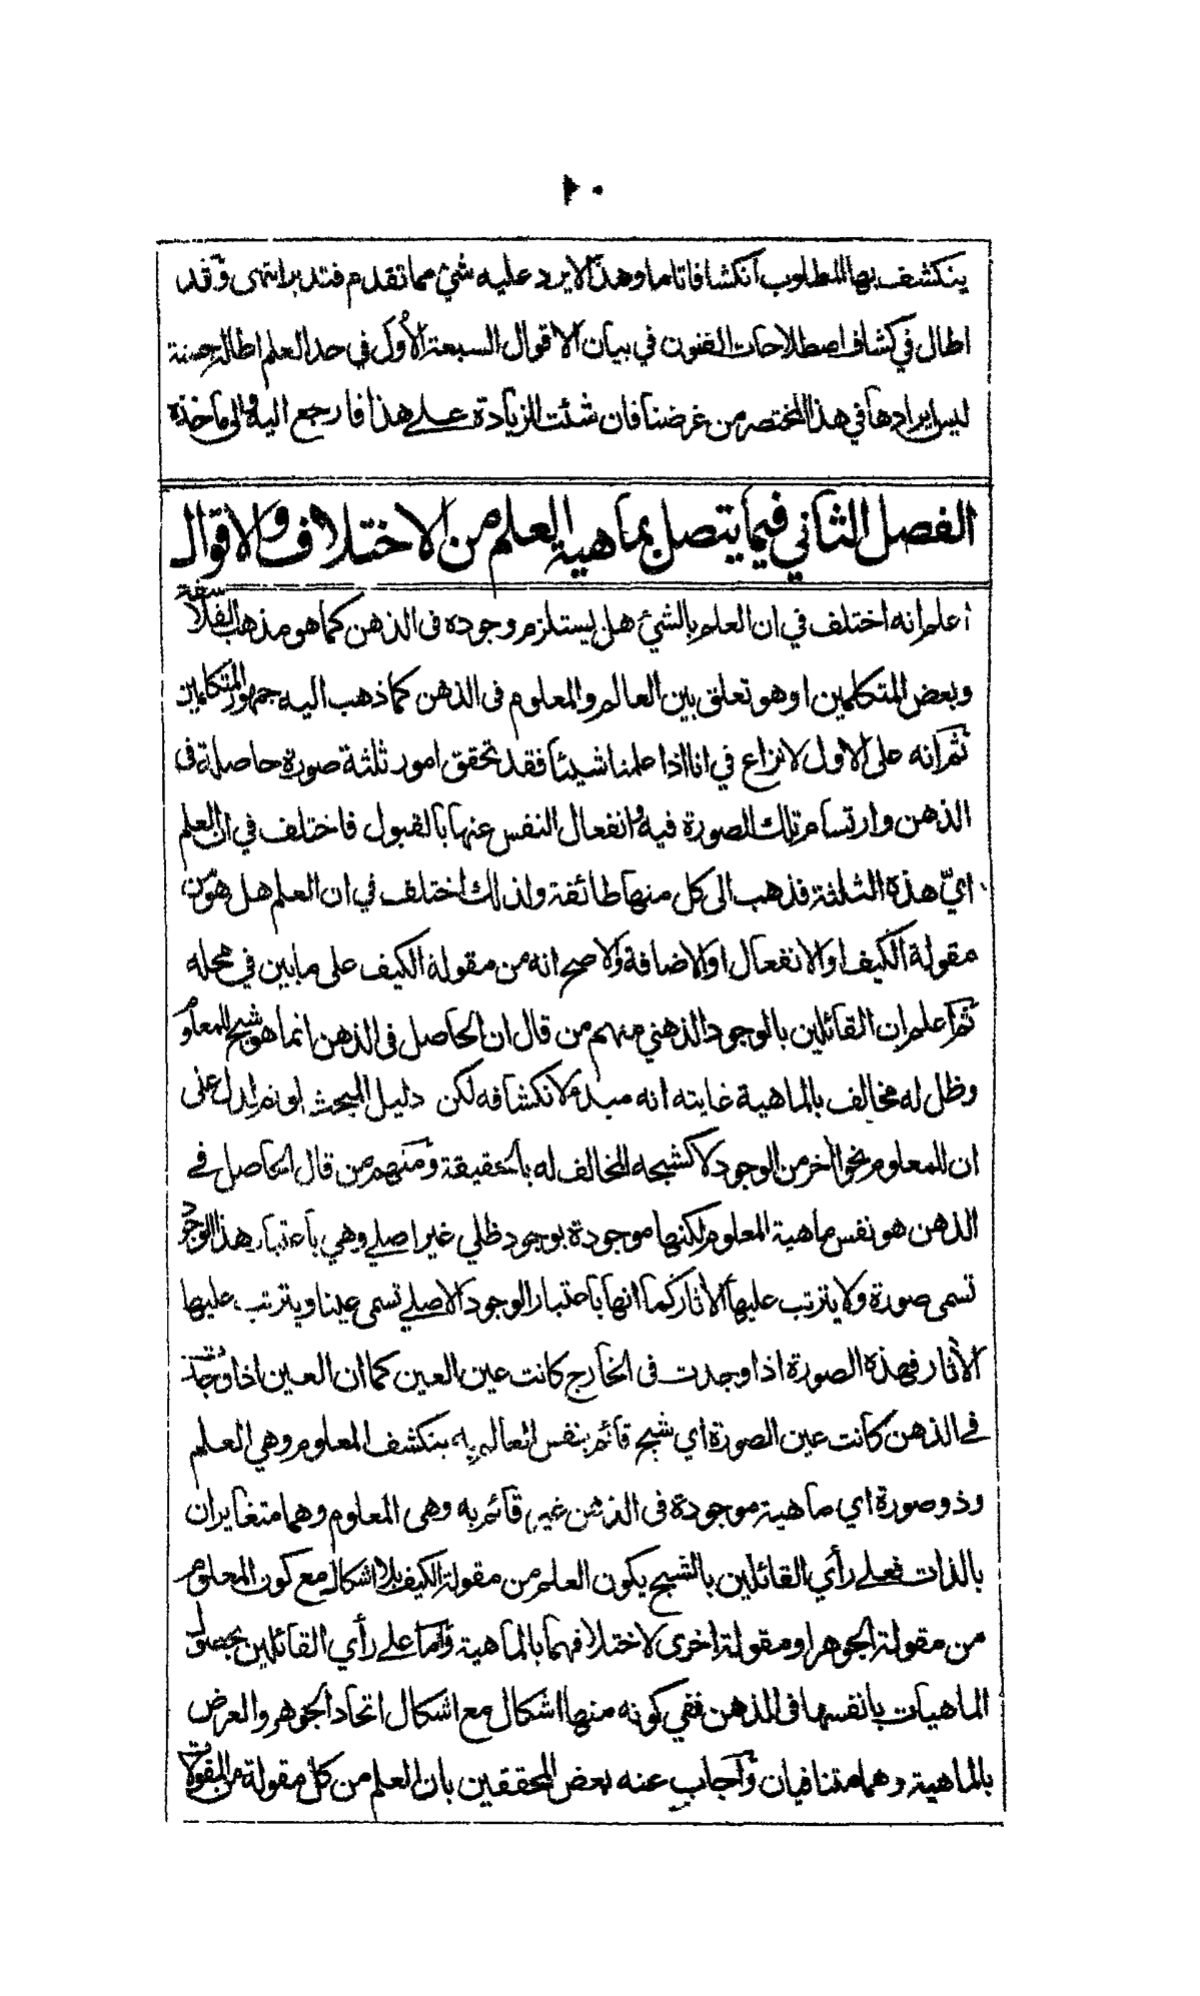 ١٠
ينكشف بها المطلوب انكشافا تاما وهذا لا يرد عليه شئ مما تقدم فتدبر انتهى وقد
اطال في كشاف اصطلاحات الفنون في بيان الاقوال السبعة الأول في حد العلم اطالة حسنة
ليس ايرادها في هذا المختصر من غرضنا فان شئت الزيادة على هذا فارجع اليه والى مآخذه
الفصل الثاني فيما يتصل بماهية العلم من الاختلاف والاقوال
اعلم انه اختلف في ان العلم بالشئ هل يستلزم وجوده فى الذهن كما هو مذهب الفلاسفة
وبعض المتكلمين او هو تعلق بين العالم والمعلوم فى الذهن كما ذهب اليه جمهور المتكلمين
ثم انه على الاول لا نزاع في انا اذا علمنا شيئا فقد تحقق امور ثلثة صورة حاصلة فى
الذهن وارتسام تلك الصورة فيه وانفعال النفس عنها بالقبول فاختلف في ان العلم
ايّ هذه الثلثة فذهب الى كل منها طائفة ولذلك اختلف في ان العلم هل هو من
مقولة الكيف او الانفعال او الاضافة والاصح انه من مقولة الكيف على ما بين في محله
ثم اعلم ان القائلين بالوجود الذهني منهم من قال ان الحاصل فى الذهن انما هو شبح المعلوم
وظل له مخالف بالماهية غايته انه مبدء لانكشافه لكن دليل المبحث لو تم لدل على
ان للمعلوم نحوا آخر من الوجود لا كشبحه المخالف له بالحقيقة ومنهم من قال الحاصل في
الذهن هو نفس ماهية المعلوم لكنها موجودة بوجود ظلي غير اصلي وهي باعتبار هذا الوجود
تسمى صورة ولا يترتب عليها الآثار كما انها باعتبار الوجود الاصلي تسمى عينا ويترتب عليها
الآثار فهذه الصورة اذا وجدت فى الخارج كانت عين العين كما ان العين اذا وجدت
في الذهن كانت عين الصورة اي شبح قائم بنفس العالم به ينكشف المعلوم وهي العلم
وذو صورة اي ماهية موجودة فى الذهن غير قائم به وهى المعلوم وهما متغايران
بالذات فعلى رأي القائلين بالشبح يكون العلم من مقولة الكيف بلا اشكال مع كون المعلوم
من مقولة الجوهر او مقولة اخرى لاختلافهما بالماهية واما على رأي القائلين بحصول
الماهيات بانفسها فى الذهن ففي كونه منها اشكال مع اشكال اتحاد الجوهر والعرض
بالماهية وهما متنافيان واجاب عنه بعض المحققين بان العلم من كل مقولة من المقولات